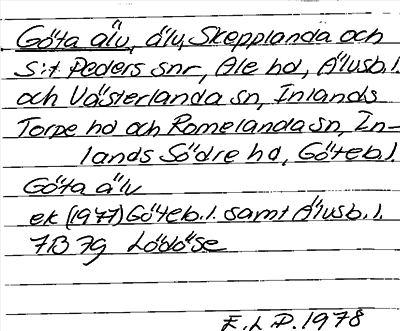 Göta älv, älv, Skepplanda och
S:t Peders snr, Ale hd, Älvsb.l.
och Västerlanda sn, Inlands
Torpe hd och Romelanda sn, In-
lands Södre hd, Göteb.l.
Göta älv
ek (1977) Göteb.l. samt Älvsb.l.
7B 7g Lödöse
E.L.P. 1978